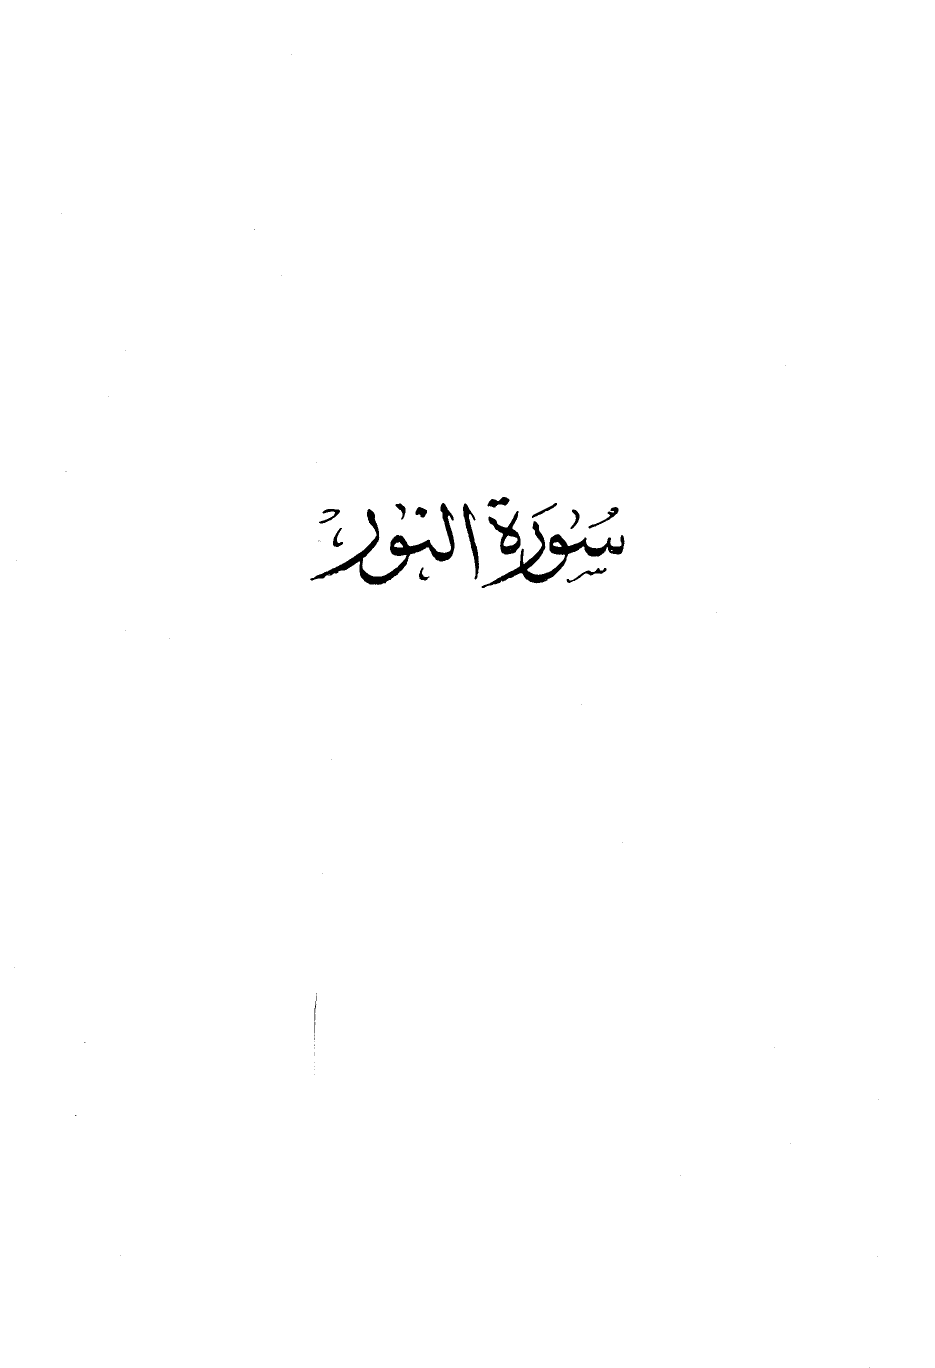 سُورَة النور